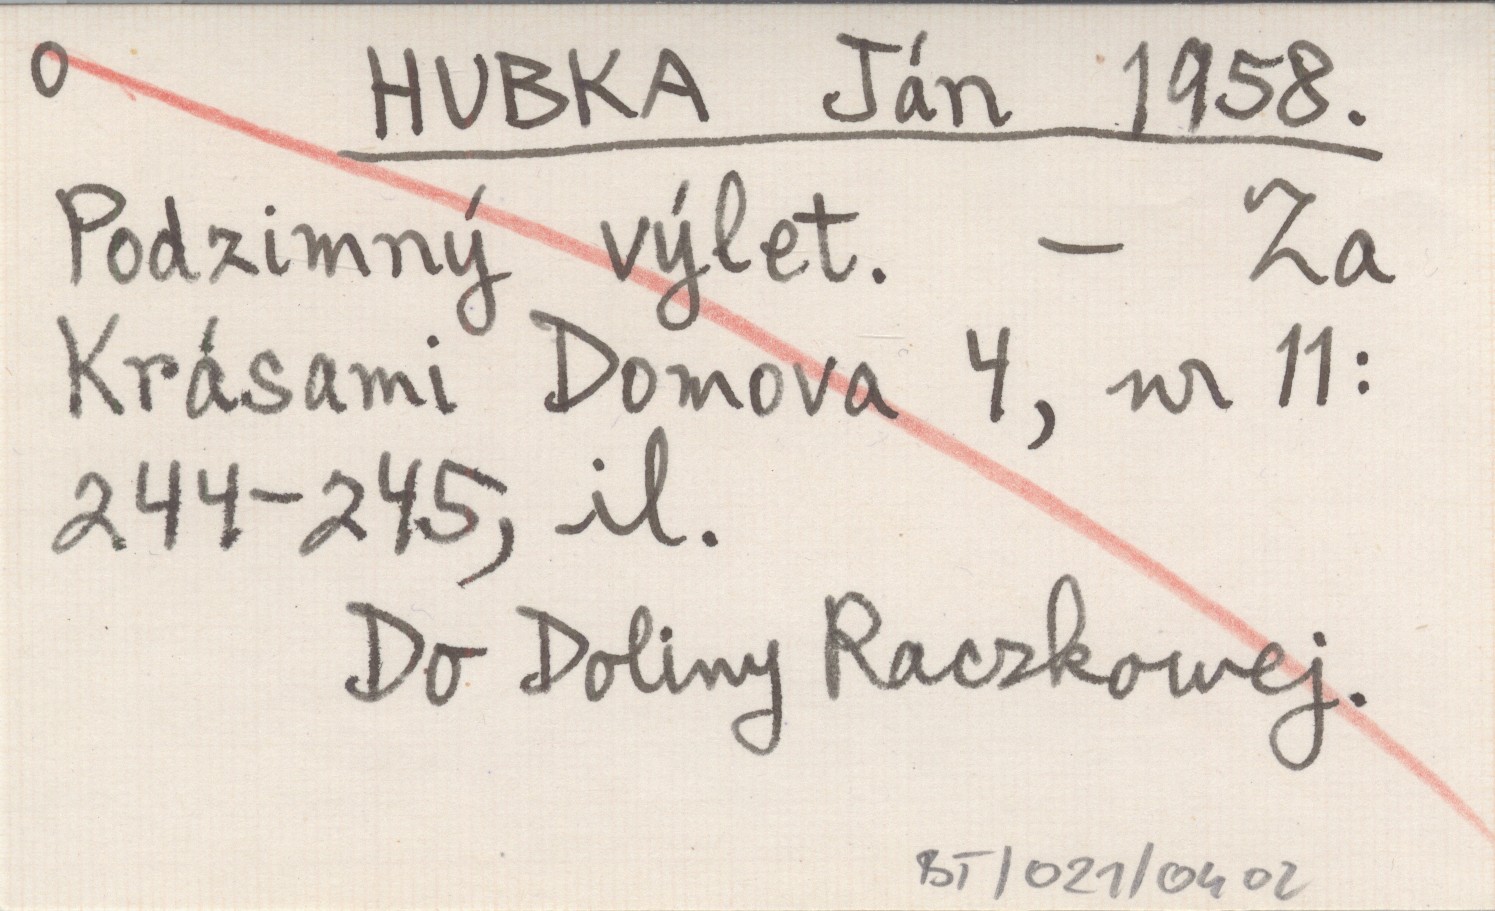 O HUBKA Ján 1958.
Podzimný výlet. – Za
Krásami Domova 4, nr 11:
244-245, il.
Do Doliny Raczkowej.
BT/021/0402